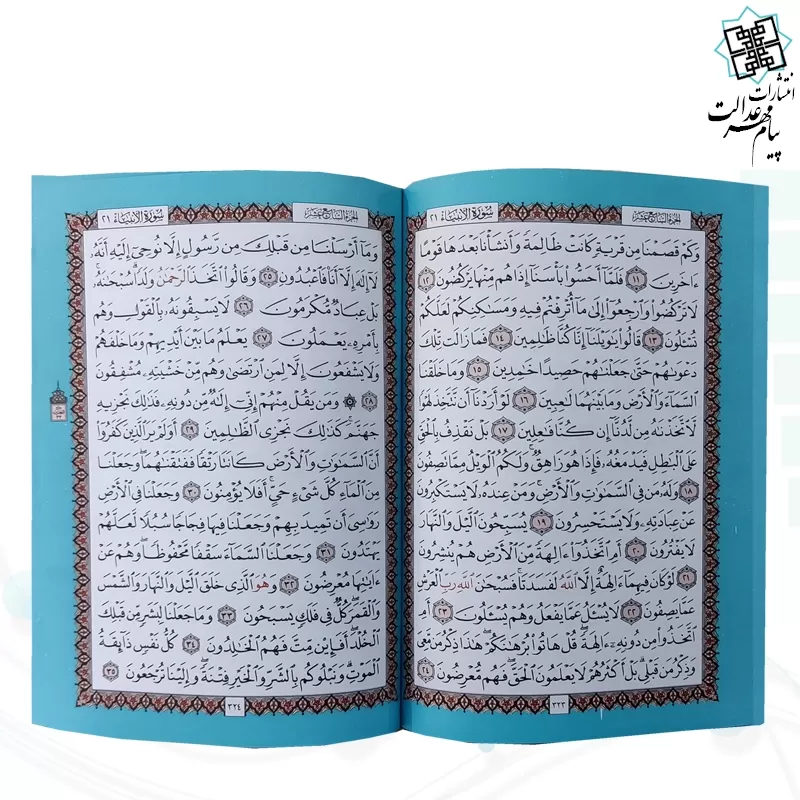 انتشارات
پیام مهر عدالت
الجزء السابع عشر
سورة الأنبياء ٢١
وَكَمْ قَصَمْنَا مِن قَرْيَةٍ كَانَتْ ظَالِمَةً وَأَنشَأْنَا بَعْدَهَا قَوْمًا
ءَاخَرِينَ ١١ فَلَمَّا أَحَسُّوا بَأْسَنَا إِذَا هُم مِّنْهَا يَرْكُضُونَ ١٢
لَا تَرْكُضُوا وَارْجِعُوا إِلَى مَا أُتْرِفْتُمْ فِيهِ وَمَسَكِنِكُمْ لَعَلَّكُمْ
تُسْئَلُونَ ١٣ قَالُوا يَوَيْلَنَا إِنَّا كُنَّا ظَلِمِينَ ١٤ فَمَا زَالَت تِّلْكَ
دَعْوَىهُمْ حَتَّى جَعَلْنَهُمْ حَصِيدًا خَمِدِينَ ١٥ وَمَا خَلَقْنَا
السَّمَاءَ وَالْأَرْضَ وَمَا بَيْنَهُمَا لَعِبِينَ ١٦ لَوْ أَرَدْنَا أَن نَّتَّخِذَ لَهْوًا
لَّاتَّخَذْنَهُ مِن لَّدُنَّا إِن كُنَّا فَعِلِينَ ١٧ بَلْ نَقْذِفُ بِالْحَقِّ
عَلَى الْبَطِلِ فَيَدْمَغُهُ فَإِذَا هُوَ زَاهِقٌ وَلَكُمُ الْوَيْلُ مِمَّا تَصِفُونَ
١٨ وَلَهُ مَن فِي السَّمَوَتِ وَالْأَرْضِ وَمَنْ عِندَهُ لَا يَسْتَكْبِرُونَ
عَنْ عِبَادَتِهِ وَلَا يَسْتَحْسِرُونَ ١٩ يُسَبِّحُونَ الَّيْلَ وَالنَّهَارَ
لَا يَفْتُرُونَ ٢٠ أَمِ اتَّخَذُوا ءَالِهَةً مِّنَ الْأَرْضِ هُمْ يُنشِرُونَ
٢١ لَوْ كَانَ فِيهِمَا ءَالِهَةٌ إِلَّا اللَّهُ لَفَسَدَتَا فَسُبْحَنَ اللَّهِ رَبِّ الْعَرْشِ
عَمَّا يَصِفُونَ ٢٢ لَا يُسْئَلُ عَمَّا يَفْعَلُ وَهُمْ يُسْئَلُونَ ٢٣ أَمِ
اتَّخَذُوا مِن دُونِهِ ءَالِهَةً قُلْ هَاتُوا بُرْهَنَكُمْ هَذَا ذِكْرُ مَن مَّعِيَ
وَذِكْرُ مَن قَبْلِي بَلْ أَكْثَرُهُمْ لَا يَعْلَمُونَ الْحَقَّ فَهُم مُّعْرِضُونَ ٢٤
٣٢٣
الجزء السابع عشر
سورة الأنبياء ٢١
وَمَا أَرْسَلْنَا مِن قَبْلِكَ مِن رَّسُولٍ إِلَّا نُوحِي إِلَيْهِ أَنَّهُ
لَا إِلَهَ إِلَّا أَنَا فَاعْبُدُونِ ٢٥ وَقَالُوا اتَّخَذَ الرَّحْمَنُ وَلَدًا سُبْحَنَهُ
بَلْ عِبَادٌ مُّكْرَمُونَ ٢٦ لَا يَسْبِقُونَهُ بِالْقَوْلِ وَهُم
بِأَمْرِهِ يَعْمَلُونَ ٢٧ يَعْلَمُ مَا بَيْنَ أَيْدِيهِمْ وَمَا خَلْفَهُمْ
وَلَا يَشْفَعُونَ إِلَّا لِمَنِ ارْتَضَى وَهُم مِّنْ خَشْيَتِهِ مُشْفِقُونَ
٢٨ ۞ وَمَن يَقُلْ مِنْهُمْ إِنِّي إِلَهٌ مِّن دُونِهِ فَذَلِكَ نَجْزِيهِ
جَهَنَّمَ كَذَلِكَ نَجْزِي الظَّلِمِينَ ٢٩ أَوَلَمْ يَرَ الَّذِينَ كَفَرُوا
أَنَّ السَّمَوَتِ وَالْأَرْضَ كَانَتَا رَتْقًا فَفَتَقْنَهُمَا وَجَعَلْنَا
مِنَ الْمَاءِ كُلَّ شَيْءٍ حَيٍّ أَفَلَا يُؤْمِنُونَ ٣٠ وَجَعَلْنَا فِي الْأَرْضِ
رَوَسِيَ أَن تَمِيدَ بِهِمْ وَجَعَلْنَا فِيهَا فِجَاجًا سُبُلًا لَّعَلَّهُمْ
يَهْتَدُونَ ٣١ وَجَعَلْنَا السَّمَاءَ سَقْفًا مَّحْفُوظًا وَهُمْ عَنْ
ءَايَتِهَا مُعْرِضُونَ ٣٢ وَهُوَ الَّذِي خَلَقَ الَّيْلَ وَالنَّهَارَ وَالشَّمْسَ
وَالْقَمَرَ كُلٌّ فِي فَلَكٍ يَسْبَحُونَ ٣٣ وَمَا جَعَلْنَا لِبَشَرٍ مِّن قَبْلِكَ
الْخُلْدَ أَفَإِين مِّتَّ فَهُمُ الْخَلِدُونَ ٣٤ كُلُّ نَفْسٍ ذَائِقَةُ
الْمَوْتِ وَنَبْلُوكُم بِالشَّرِّ وَالْخَيْرِ فِتْنَةً وَإِلَيْنَا تُرْجَعُونَ ٣٥
٣٢٤